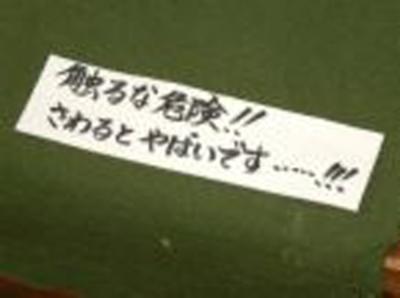 触るな危険!!
さわるとやばいです……!!!